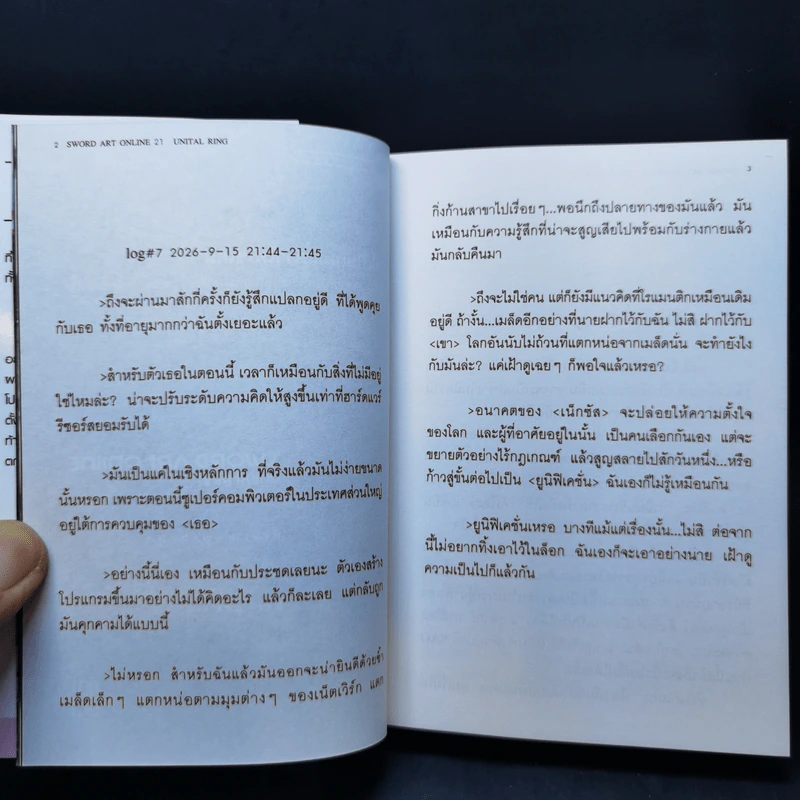 2 SWORD ART ONLINE 21 UNITAL RING
log#7 2026-9-15 21:44-21:45
>ถึงจะผ่านมาสักกี่ครั้งก็ยังรู้สึกแปลกอยู่ดี ที่ได้พูดคุย
กับเธอ ทั้งที่อายุมากกว่าฉันตั้งเยอะแล้ว
>สำหรับตัวเธอในตอนนี้ เวลาก็เหมือนกับสิ่งที่ไม่มีอยู่
ใช่ไหมล่ะ? น่าจะปรับระดับความคิดให้สูงขึ้นเท่าที่ฮาร์ดแวร์
รีซอร์สยอมรับได้
>มันเป็นแค่ในเชิงหลักการ ที่จริงแล้วมันไม่ง่ายขนาด
นั้นหรอก เพราะตอนนี้ซูเปอร์คอมพิวเตอร์ในประเทศส่วนใหญ่
อยู่ใต้การควบคุมของ <เธอ>
>อย่างนี้นี่เอง เหมือนกับประชดเลยนะ ตัวเองสร้าง
โปรแกรมขึ้นมาอย่างไม่ได้คิดอะไร แล้วก็ละเลย แต่กลับถูก
มันคุกคามได้แบบนี้
>ไม่หรอก สำหรับฉันแล้วมันออกจะน่ายินดีด้วยซ้ำ
เมล็ดเล็กๆ แตกหน่อตามมุมต่างๆ ของเน็ตเวิร์ก แตก
3
กิ่งก้านสาขาไปเรื่อยๆ...พอนึกถึงปลายทางของมันแล้ว มัน
เหมือนกับความรู้สึกที่น่าจะสูญเสียไปพร้อมกับร่างกายแล้ว
มันกลับคืนมา
>ถึงจะไม่ใช่คน แต่ก็ยังมีแนวคิดที่โรแมนติกเหมือนเดิม
อยู่ดี ถ้างั้น...เมล็ดอีกอย่างที่นายฝากไว้กับฉัน ไม่สิ ฝากไว้กับ
<เขา> โลกอันนับไม่ถ้วนที่แตกหน่อจากเมล็ดนั่น จะทำยังไง
กับมันล่ะ? แค่เฝ้าดูเฉยๆ ก็พอใจแล้วเหรอ?
>อนาคตของ <เน็กซัส> จะปล่อยให้ความตั้งใจ
ของโลก และผู้ที่อาศัยอยู่ในนั้น เป็นคนเลือกกันเอง แต่จะ
ขยายตัวอย่างไร้กฎเกณฑ์ แล้วสูญสลายไปสักวันหนึ่ง...หรือ
ก้าวสู่ขั้นต่อไปเป็น <ยูนิฟิเคชั่น> ฉันเองก็ไม่รู้เหมือนกัน
>ยูนิฟิเคชั่นเหรอ บางทีแม้แต่เรื่องนั้น...ไม่สิ ต่อจาก
นี้ไม่อยากทิ้งเอาไว้ในล็อก ฉันเองก็จะเอาอย่างนาย เฝ้าดู
ความเป็นไปก็แล้วกัน